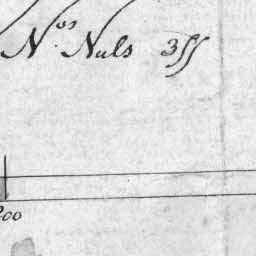 N.os Nuls 3ſſ
200